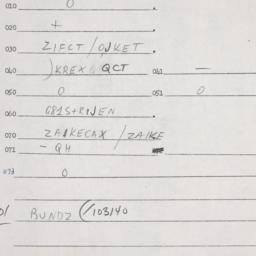 010 0
020 +
030 ZIFCT / OJKET
040 )KREX QCT 041 —
050 0 051 0
060 G81S+RIJEN
070 ZAIKECAX / ZAIKE
071 - QH
073 0
01 BUNDZ (/103/40